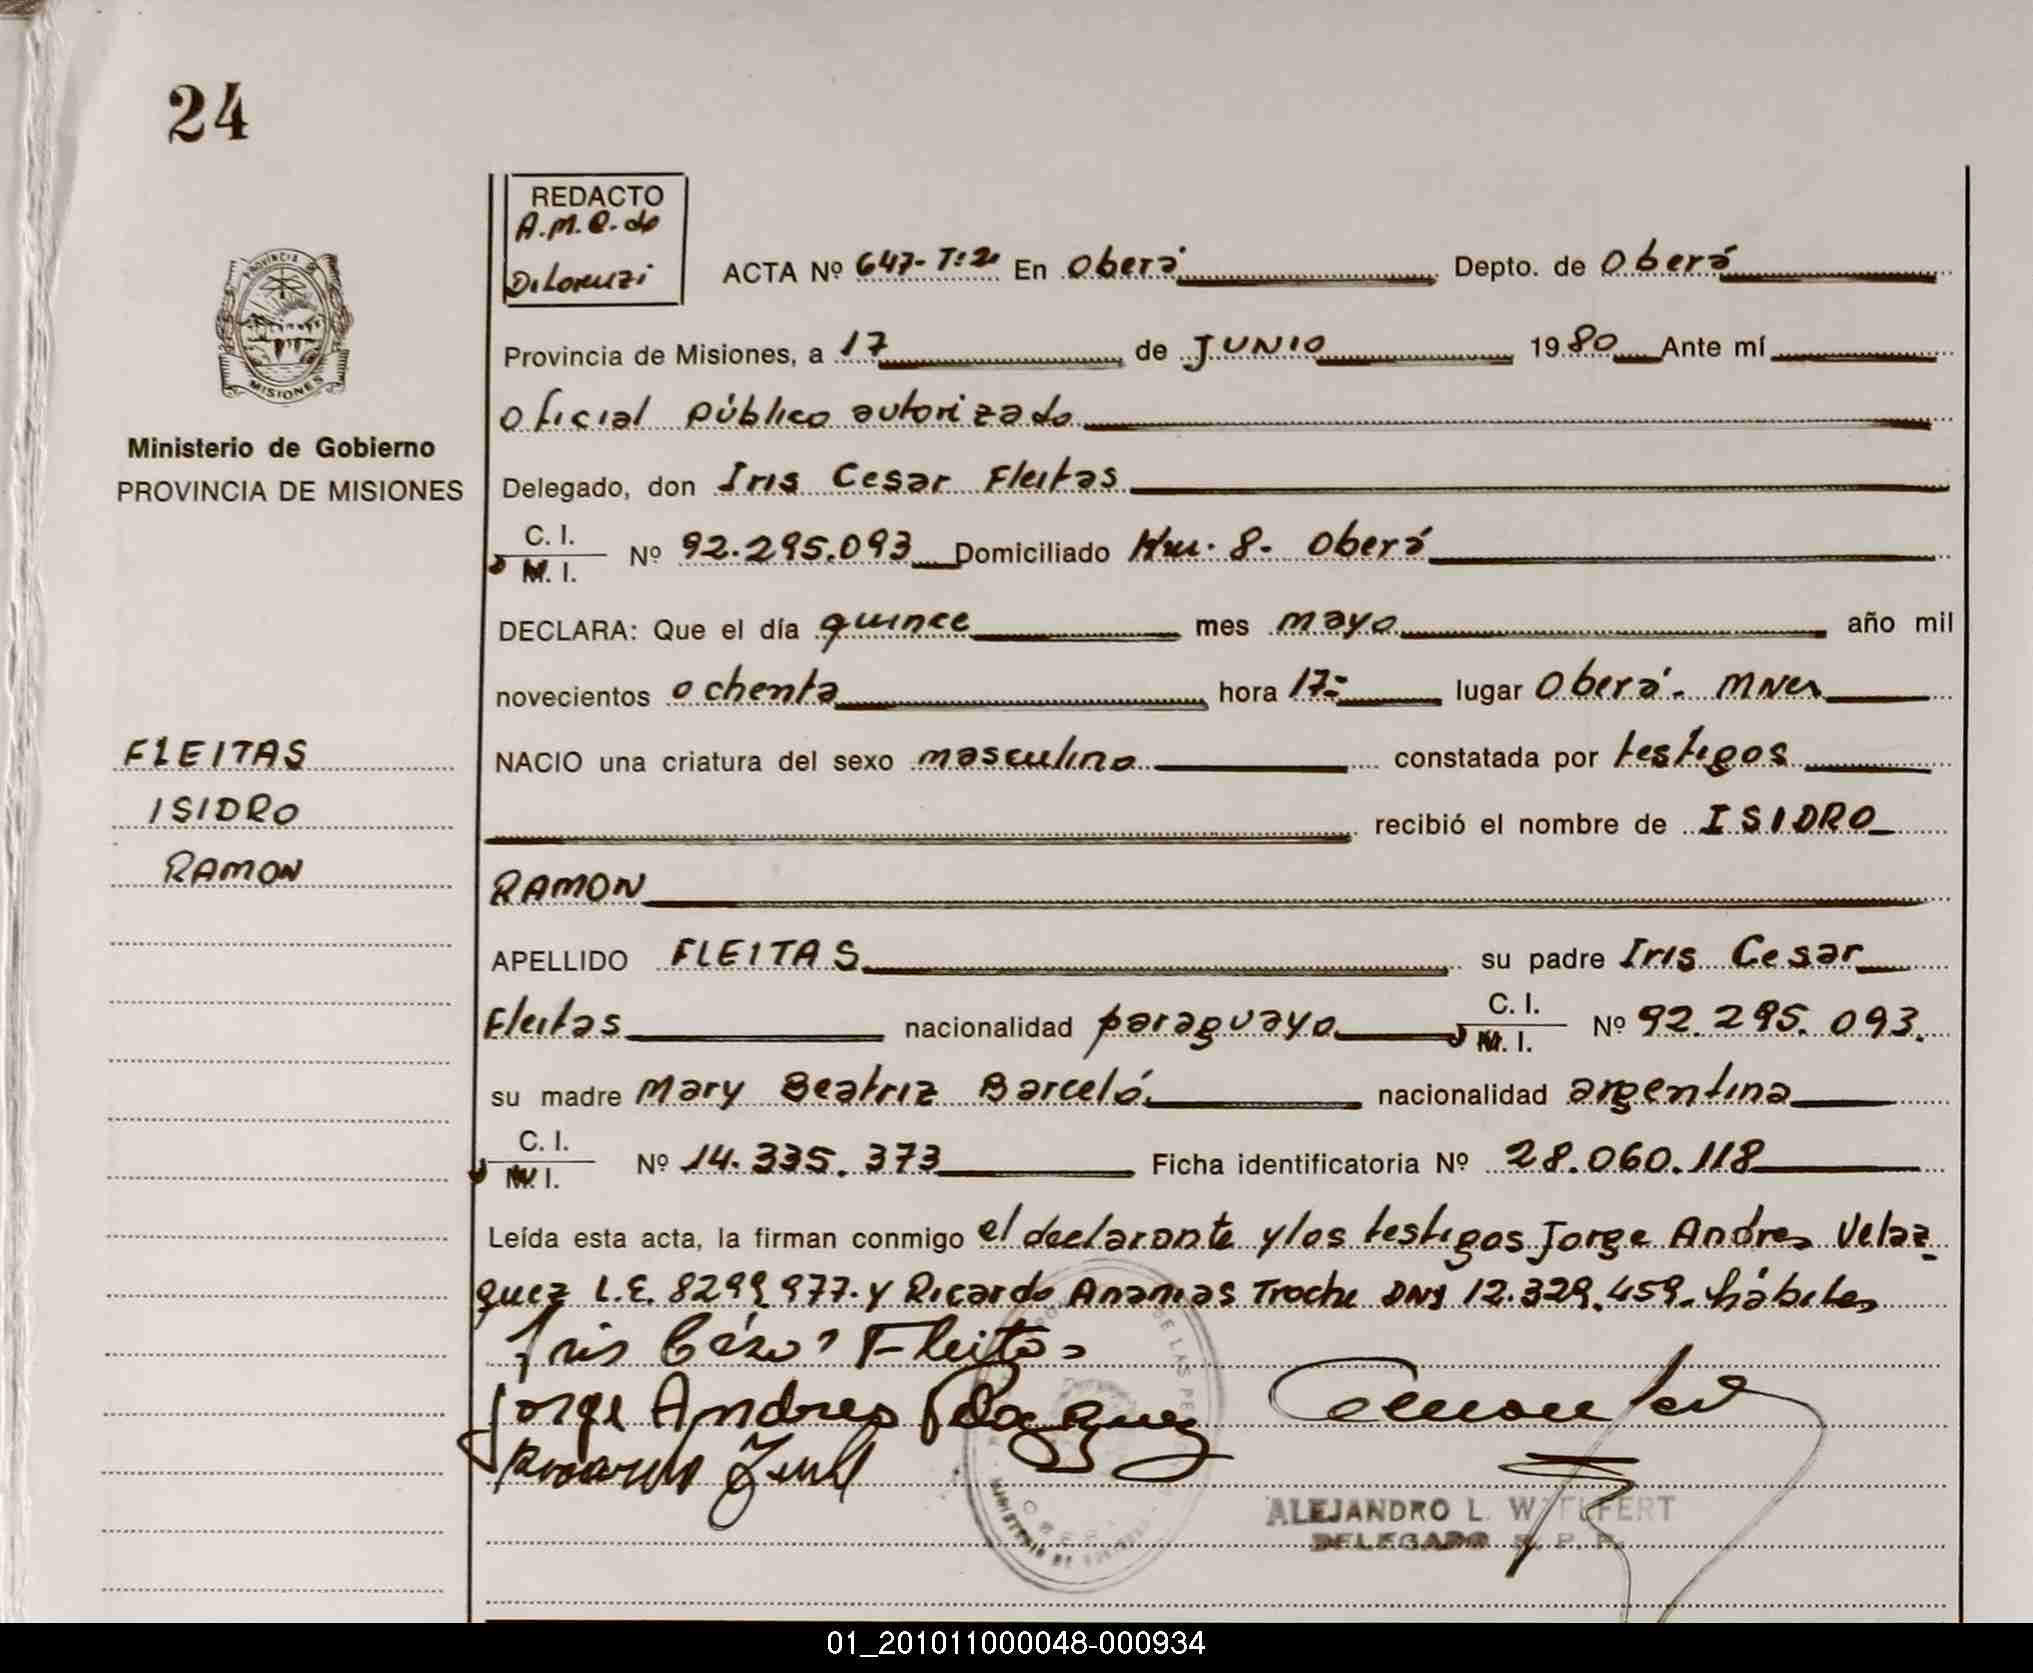 24
REDACTO
A.M.C. de
D. Lorenzi
ACTA Nº 647-T:2. En Oberá Depto. de Oberá
PROVINCIA DE
MISIONES
Provincia de Misiones, a 17 de JUNIO 1980 Ante mí
Oficial público autorizado
Ministerio de Gobierno
PROVINCIA DE MISIONES
Delegado, don Iris Cesar Fleitas
C. I.
M. I. Nº 92.295.093 Domiciliado Km. 8. Oberá
DECLARA: Que el día quince mes mayo año mil
novecientos ochenta hora 17:- lugar Oberá. Mnes
FLEITAS
ISIDRO
RAMON
NACIO una criatura del sexo masculino constatada por testigos
recibió el nombre de ISIDRO
RAMON
APELLIDO FLEITAS su padre Iris Cesar
Fleitas nacionalidad paraguaya C. I.
M. I. Nº 92.295.093.
su madre Mary Beatriz Barceló. nacionalidad argentina
C. I.
M. I. Nº 14.335.373 Ficha identificatoria Nº 28.060.118
Leída esta acta, la firman conmigo el declarante y los testigos Jorge Andres Velaz-
quez L.E. 8299.977. y Ricardo Ananias Troche DNI 12.329.459. hábiles
Iris César Fleitas
Jorge Andres Velazquez
Ricardo
DE LAS PE
OBERA
MINISTERIO DE
ALEJANDRO L.
DELEGADO R. P. P.
01_201011000048-000934